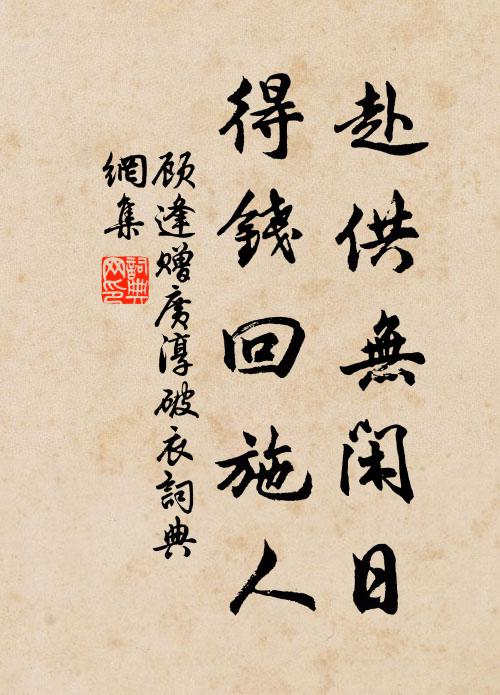 赴供無閑日
得錢回施人
顾逢贈廣淳破衣詞典
網集
詞典
网印